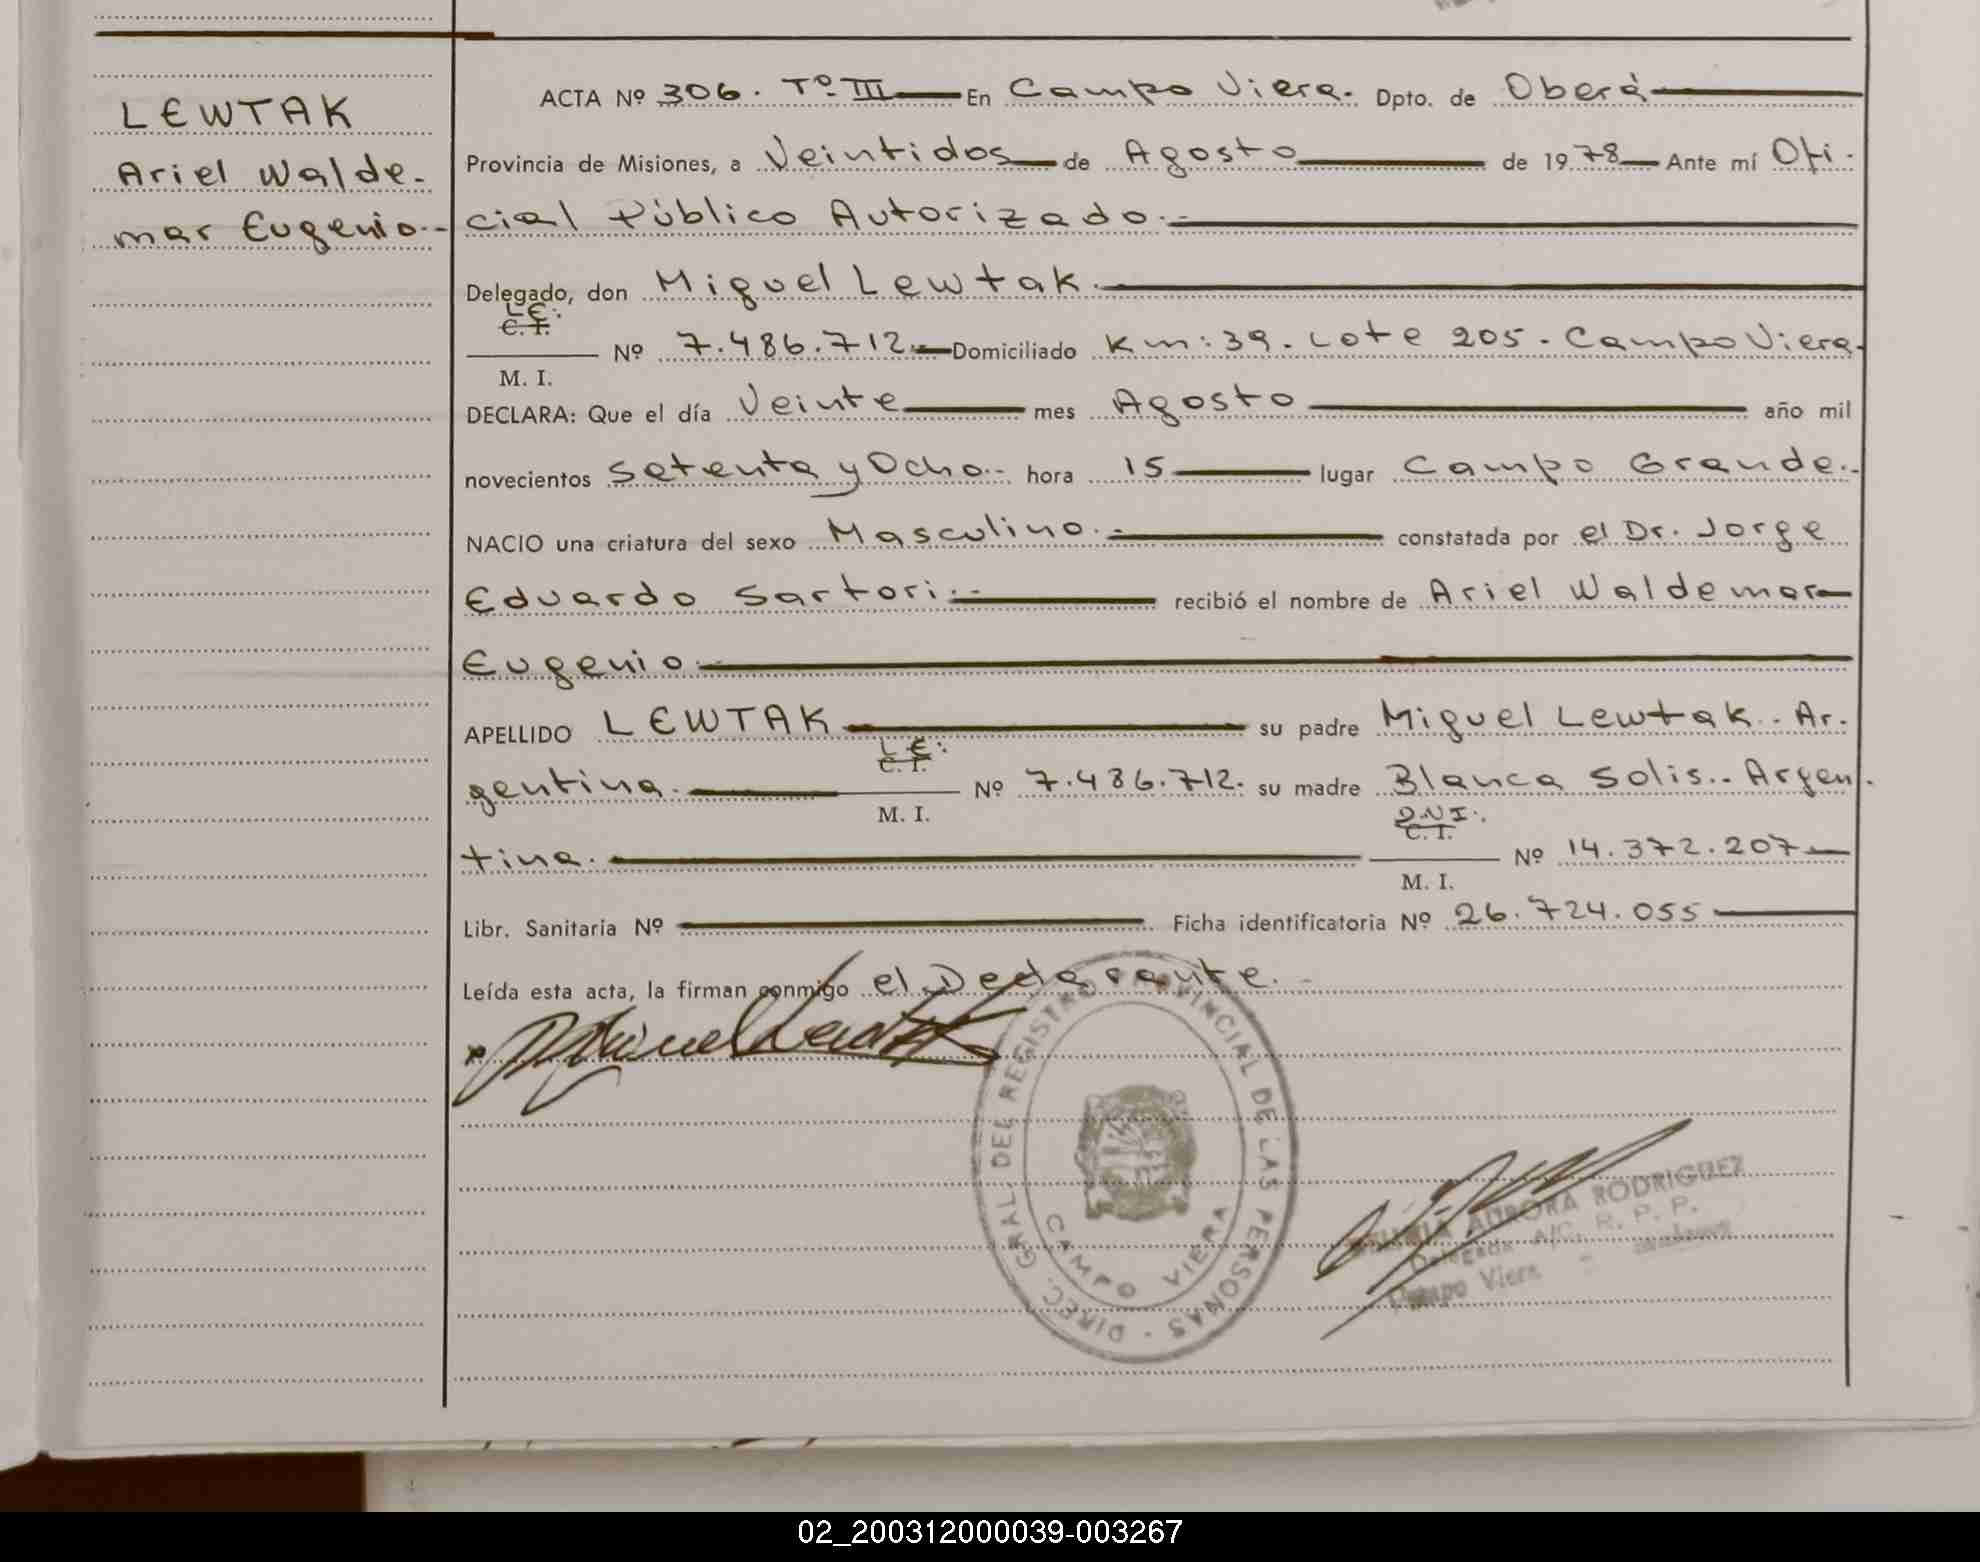 LEWTAK
Ariel Walde-
mar Eugenio.-
ACTA Nº 306. Tº III En Campo Viera. Dpto. de Oberá
Provincia de Misiones, a Veintidos de Agosto de 1978 Ante mí Ofi-
cial Público Autorizado.-
Delegado, don Miguel Lewtak.
L.E:
C. I.
Nº 7.486.712.- Domiciliado Km: 39. Lote 205. Campo Viera.
M. I.
DECLARA: Que el día Veinte mes Agosto año mil
novecientos setenta y Ocho.- hora 15 lugar Campo Grande.-
NACIO una criatura del sexo Masculino.- constatada por el Dr. Jorge
Eduardo Sartori.- recibió el nombre de Ariel Waldemar
Eugenio.
APELLIDO LEWTAK su padre Miguel Lewtak.. Ar-
L.E:
C. I.
gentina. Nº 7.486.712. su madre Blanca Solis.. Argen-
M. I.
D.N.I:.
C. I.
tina. Nº 14.372.207
M. I.
Libr. Sanitaria Nº Ficha identificatoria Nº 26.724.055
Leída esta acta, la firman conmigo el Declarante.-
x Miguel Lewtak
DIREC. GRAL. DEL REGISTRO PROVINCIAL DE LAS PERSONAS
CAMPO VIERA
AURORA RODRIGUEZ
Delegada A/C. R. P. P.
Campo Viera
02_200312000039-003267